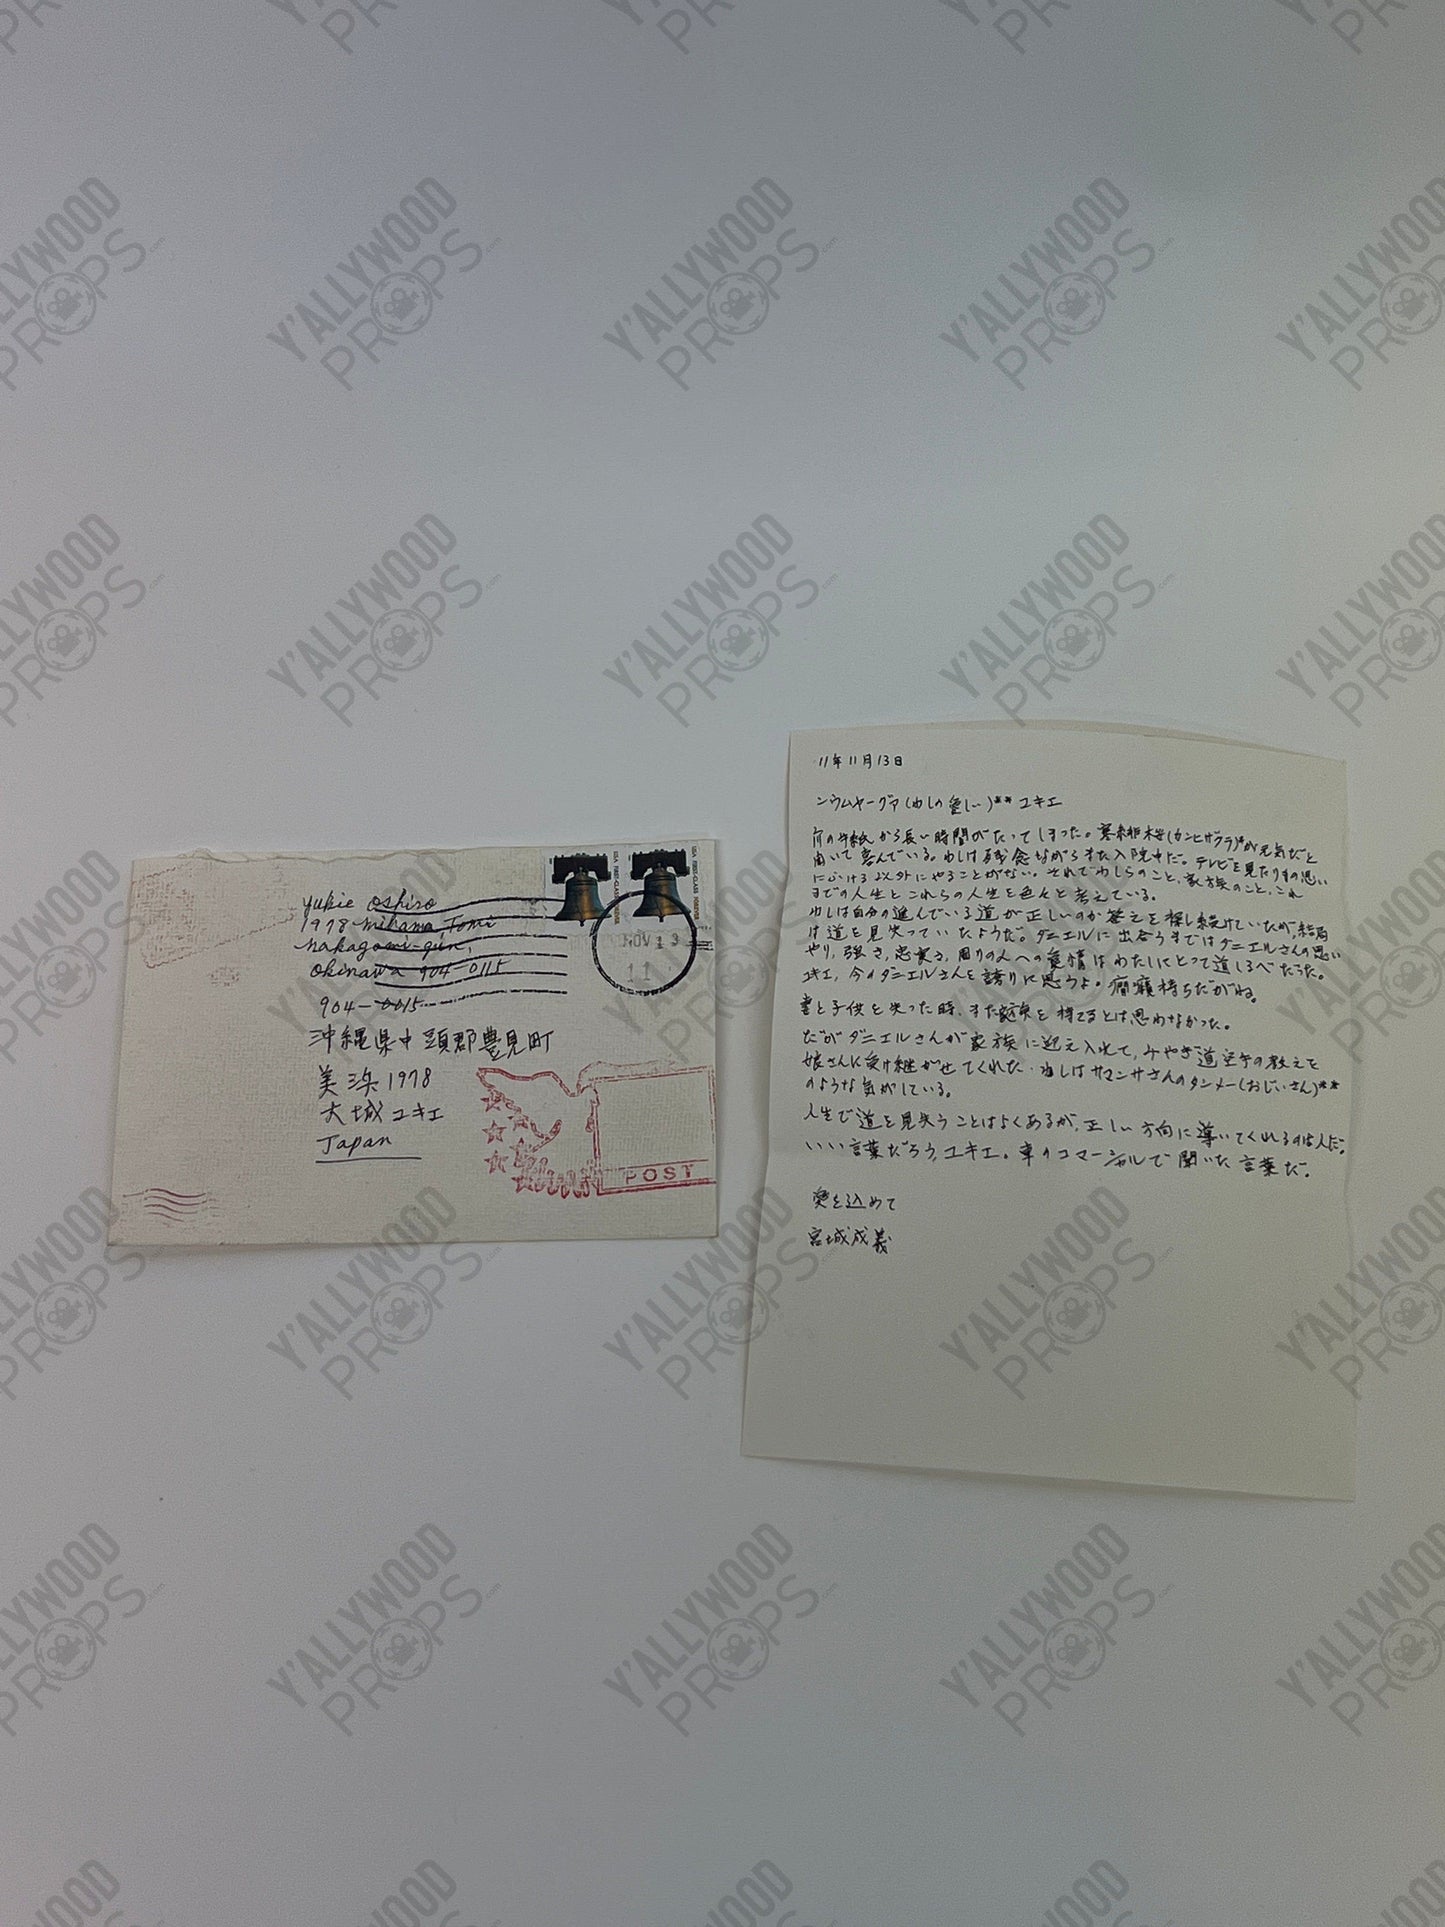 Yukie Oshiro
1978 mihama Tomi
nakagami-gun,
Okinawa 904-0115
904-0015
沖縄県中頭郡豊見町
美浜1978
大城ユキエ
Japan
USA FIRST-CLASS FOREVER
USA FIRST-CLASS FOREVER
NOV 13
11
POST
11年11月13日
ンウムヤーグヮ(わしの愛しい)** ユキエ
前の手紙から長い時間がたってしまった。寒緋桜(カンヒザクラ)*が元気だと
聞いて喜んでいる。わしは残念ながらまた入院中だ。テレビを見たりもの思い
にふける以外にやることがない。それでわしらのこと、家族のこと、これ
までの人生とこれらの人生を色々と考えている。
わしは自分の進んでいる道が正しいのか答えを探し続けていたが、結局
は道を見失っていたようだ。ダニエルに出会うまではダニエルさんの思い
やり、強さ、忠実さ、周りの人への愛情はわたしにとって道しるべだった。
ユキエ、今のダニエルさんを誇りに思うよ。癇癪持ちだがね。
妻と子供を失った時、また家族を持てるとは思わなかった。
だがダニエルさんが家族に迎え入れて、みやぎ道空手の教えを
娘さんに受け継がせてくれた。わしはサマンサさんのタンメー(おじいさん)**
のような気がしている。
人生で道を見失うことはよくあるが、正しい方向に導いてくれるのは人だ。
いい言葉だろう、ユキエ。車のコマーシャルで聞いた言葉だ。
愛を込めて
宮城成義
Y'ALLYWOOD
PROPS.com